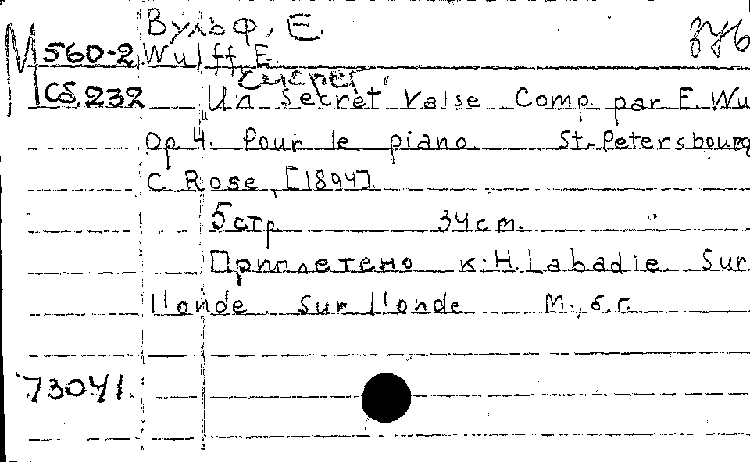 Вульф, Е. 376
M 560-2 Wulff E
Секрет.
CS.232 Un secret Valse Comp par E. Wu
Op 4. Pour le piano St-Petersbourg
C Rose, [1894]
5 стр 34 cm.
Приплетено к: H. Labadie Sur
l'onde Sur l'onde M., б.г.
73041.